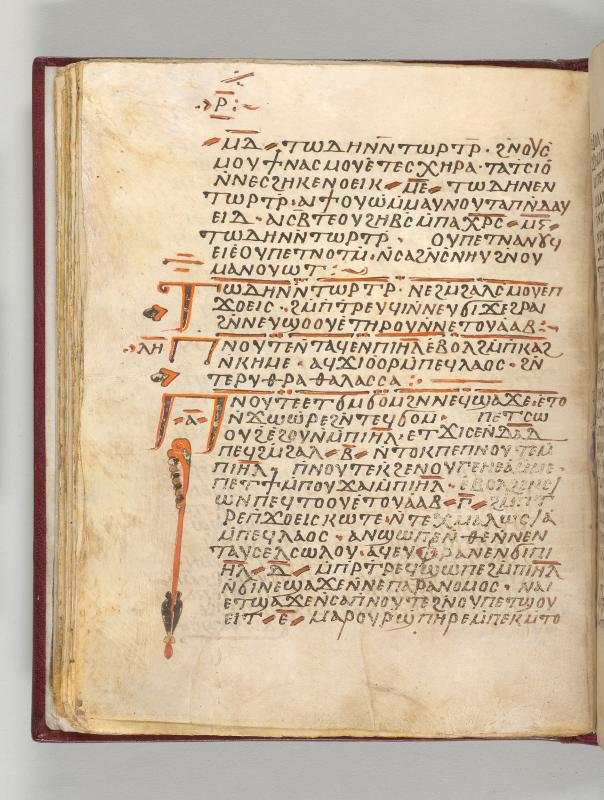 Ⲣ
ⲘⲆ ⲦⲰⲆⲎⲚⲚⲦⲰⲢⲦⲢ · ϨⲚⲞⲨⲤ
ⲘⲞⲨϮⲚⲀⲤⲘⲞⲨⲈⲦⲈⲤⲬⲎⲢⲀ · ⲦⲀⲦⲤⲒⲞ
ⲚⲚⲈⲤϨⲎⲔⲈⲚⲞⲈⲒⲔ ⲘⲈ ⲦⲰⲆⲎⲚⲈⲚ
ⲦⲰⲢⲦⲢ · ⲀⲒϮⲞⲨⲰⲘⲘⲀⲨⲚⲞⲨⲦⲀⲠⲚⲆⲀⲨ
ⲈⲒⲆ · ⲀⲒⲤⲂⲦⲈⲞⲨϨⲎⲂⲤⲘⲠⲀⲬⲢⲤ ⲘⲊ
ⲦⲰⲆⲎⲚⲚⲦⲰⲢⲦⲢ · ⲞⲨⲠⲈⲦⲚⲀⲚⲞⲨϤ
ⲈⲒⲈⲞⲨⲠⲈⲦⲚⲞⲦⲘ · ⲚⲤⲀϨⲚⲤⲚⲎⲨϨⲚⲞⲨ
ⲘⲀⲚⲞⲨⲰⲦ
ⲦⲰⲆⲎⲚⲚⲦⲰⲢⲦⲢ · ⲚⲈϨⲘϨⲀⲖⲤⲘⲞⲨⲈⲠ
ϪⲞⲈⲒⲤ · ϨⲘⲠⲦⲢⲈⲨϤⲒⲚⲚⲈⲨϬⲒϪⲈϨⲢⲀⲒ
ϨⲚⲚⲈⲨϢⲞⲞⲨⲈⲦⲎⲢⲞⲨⲚⲚⲈⲦⲞⲨⲀⲀⲂ
ⲖⲎ ⲠⲚⲞⲨⲦⲈⲚⲦⲀϤⲈⲚⲠⲒⲎⲖⲈⲂⲞⲖϨⲘⲠⲔⲀϨ
ⲚⲔⲎⲘⲈ · ⲀϤϪⲒⲞⲞⲢⲘⲠⲈϤⲖⲀⲞⲤ · ϨⲚ
ⲦⲈⲢⲨⲐⲢⲀⲐⲀⲖⲀⲤⲤⲀ
ⲠⲚⲞⲨⲦⲈⲈⲦϬⲘϬⲞⲘϨⲚⲚⲈϤϢⲀϪⲈ · ⲈⲦⲞ
Ⲁ ⲚϪⲰⲰⲢⲈϨⲚⲦⲈϤϬⲞⲘ · ⲠⲈⲦⲤⲰ
ⲞⲨϨⲈϨⲞⲨⲚⲘⲠⲒⲎⲖ · ⲈⲦϪⲒⲤⲈⲚⲆⲀⲆ
ⲠⲈϤϨⲘϨⲀⲖ Ⲃ ⲚⲦⲞⲔⲠⲈⲠⲚⲞⲨⲦⲈⲘ
ⲠⲒⲎⲖ · ⲠⲚⲞⲨⲦⲈⲔϨⲈⲚⲞⲨ
ⲠⲈⲦϮⲘⲠⲞⲨϪⲀⲒⲘⲠⲒⲎⲖ · ⲈⲂⲞⲖϨⲚ
ⲰⲚⲠⲈϤⲦⲞⲞⲨⲈⲦⲞⲨⲀⲀⲂ Ⲅ ϨⲘⲠⲦ
ⲢⲈⲠϪⲞⲈⲒⲤⲔⲰⲦⲈ · ⲚⲦⲈⲬⲘⲀⲖⲰⲤⲒⲀ
ⲘⲠⲈϤⲖⲀⲞⲤ · ⲀⲚϢⲰⲠⲈⲚⲐⲈⲚⲚⲈⲚ
ⲦⲀⲨⲤⲈⲖⲤⲰⲖⲞⲨ · ⲀϤⲈⲨⲪⲢⲀⲚⲈⲚϬⲒⲠⲒ
ⲎⲖ Ⲇ ⲘⲠⲢⲦⲢⲈϤϢⲰⲠⲈϨⲘⲠⲒⲎⲖ
ⲚϬⲒⲚⲈϢⲀϪⲈⲚⲚⲈⲠⲀⲢⲀⲚⲞⲘⲞⲤ · ⲚⲀⲒ
ⲈⲦϢⲀϪⲈⲚⲤⲀⲠⲚⲞⲨⲦⲈϨⲚⲞⲨⲠⲈⲦϢⲞⲨ
ⲈⲒⲦ Ⲉ ⲘⲀⲢⲞⲨⲢϢⲠⲎⲢⲈⲘⲠⲈⲔⲘⲦⲞ